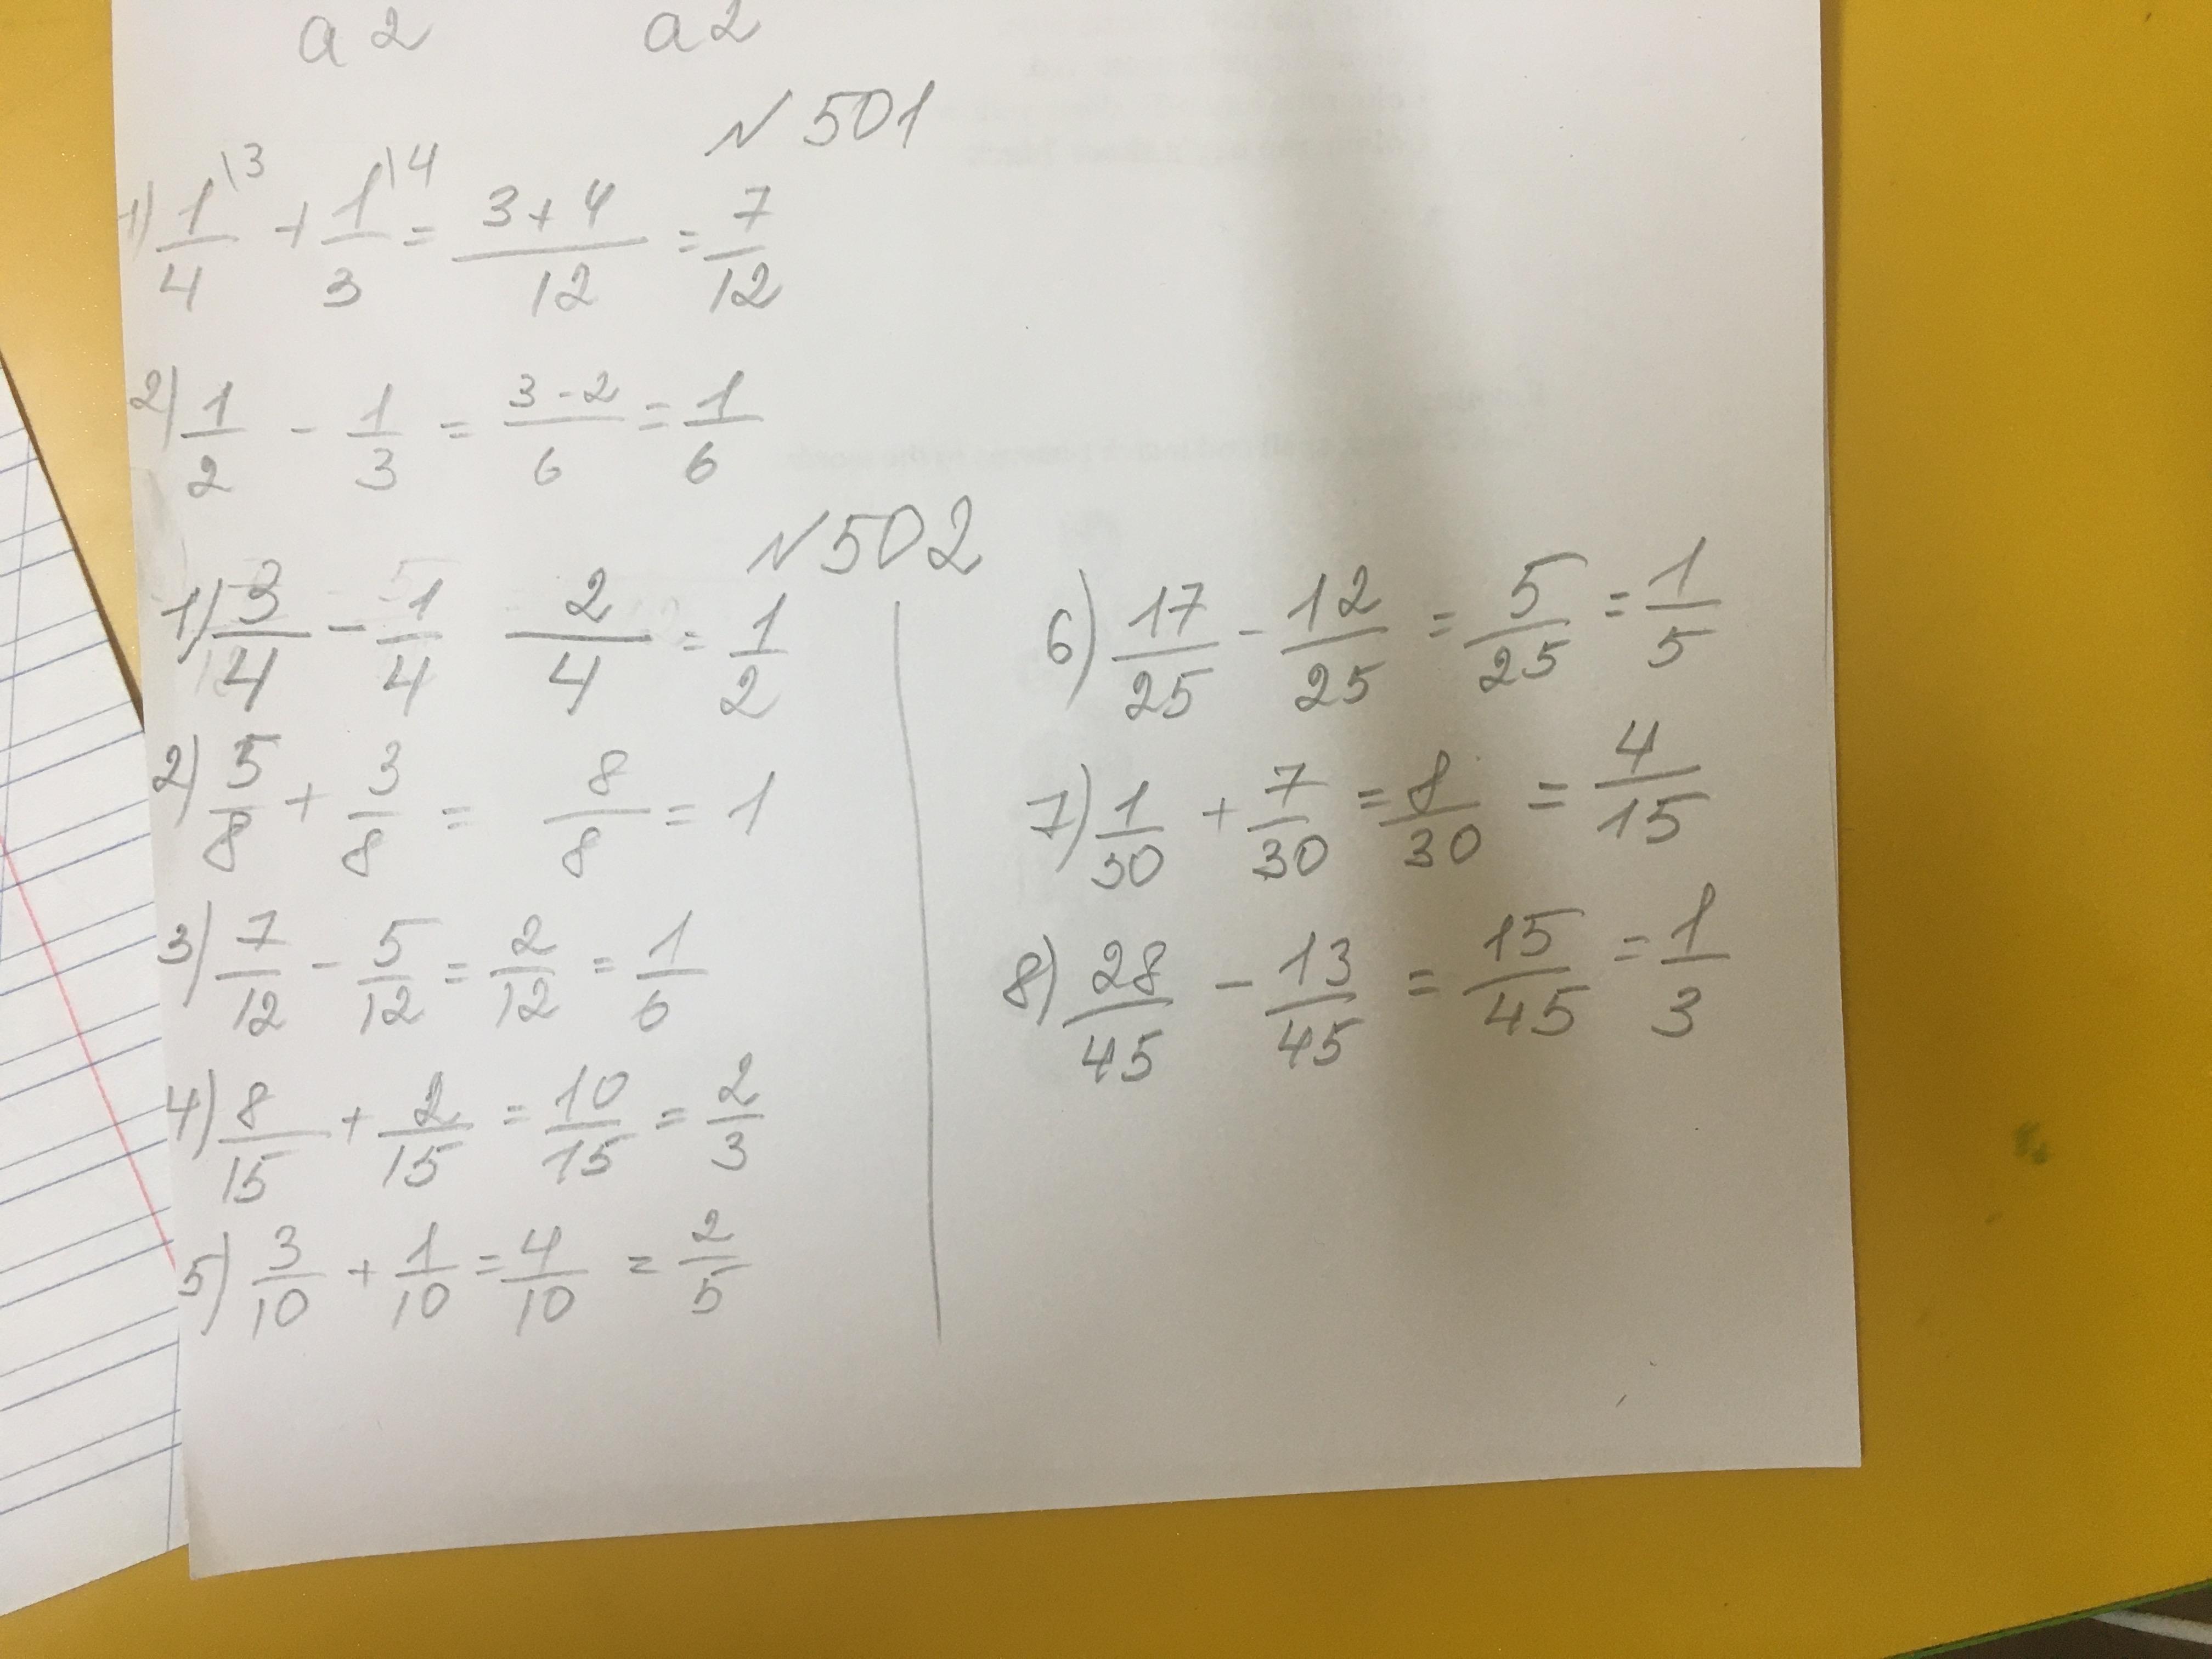 a2 a2
№ 501
1) 1/4 \3 + 1/3 \4 = (3+4)/12 = 7/12
2) 1/2 - 1/3 = (3-2)/6 = 1/6
№ 502
1) 3/4 - 1/4 2/4 = 1/2
2) 5/8 + 3/8 = 8/8 = 1
3) 7/12 - 5/12 = 2/12 = 1/6
4) 8/15 + 2/15 = 10/15 = 2/3
5) 3/10 + 1/10 = 4/10 = 2/5
6) 17/25 - 12/25 = 5/25 = 1/5
7) 1/30 + 7/30 = 8/30 = 4/15
8) 28/45 - 13/45 = 15/45 = 1/3